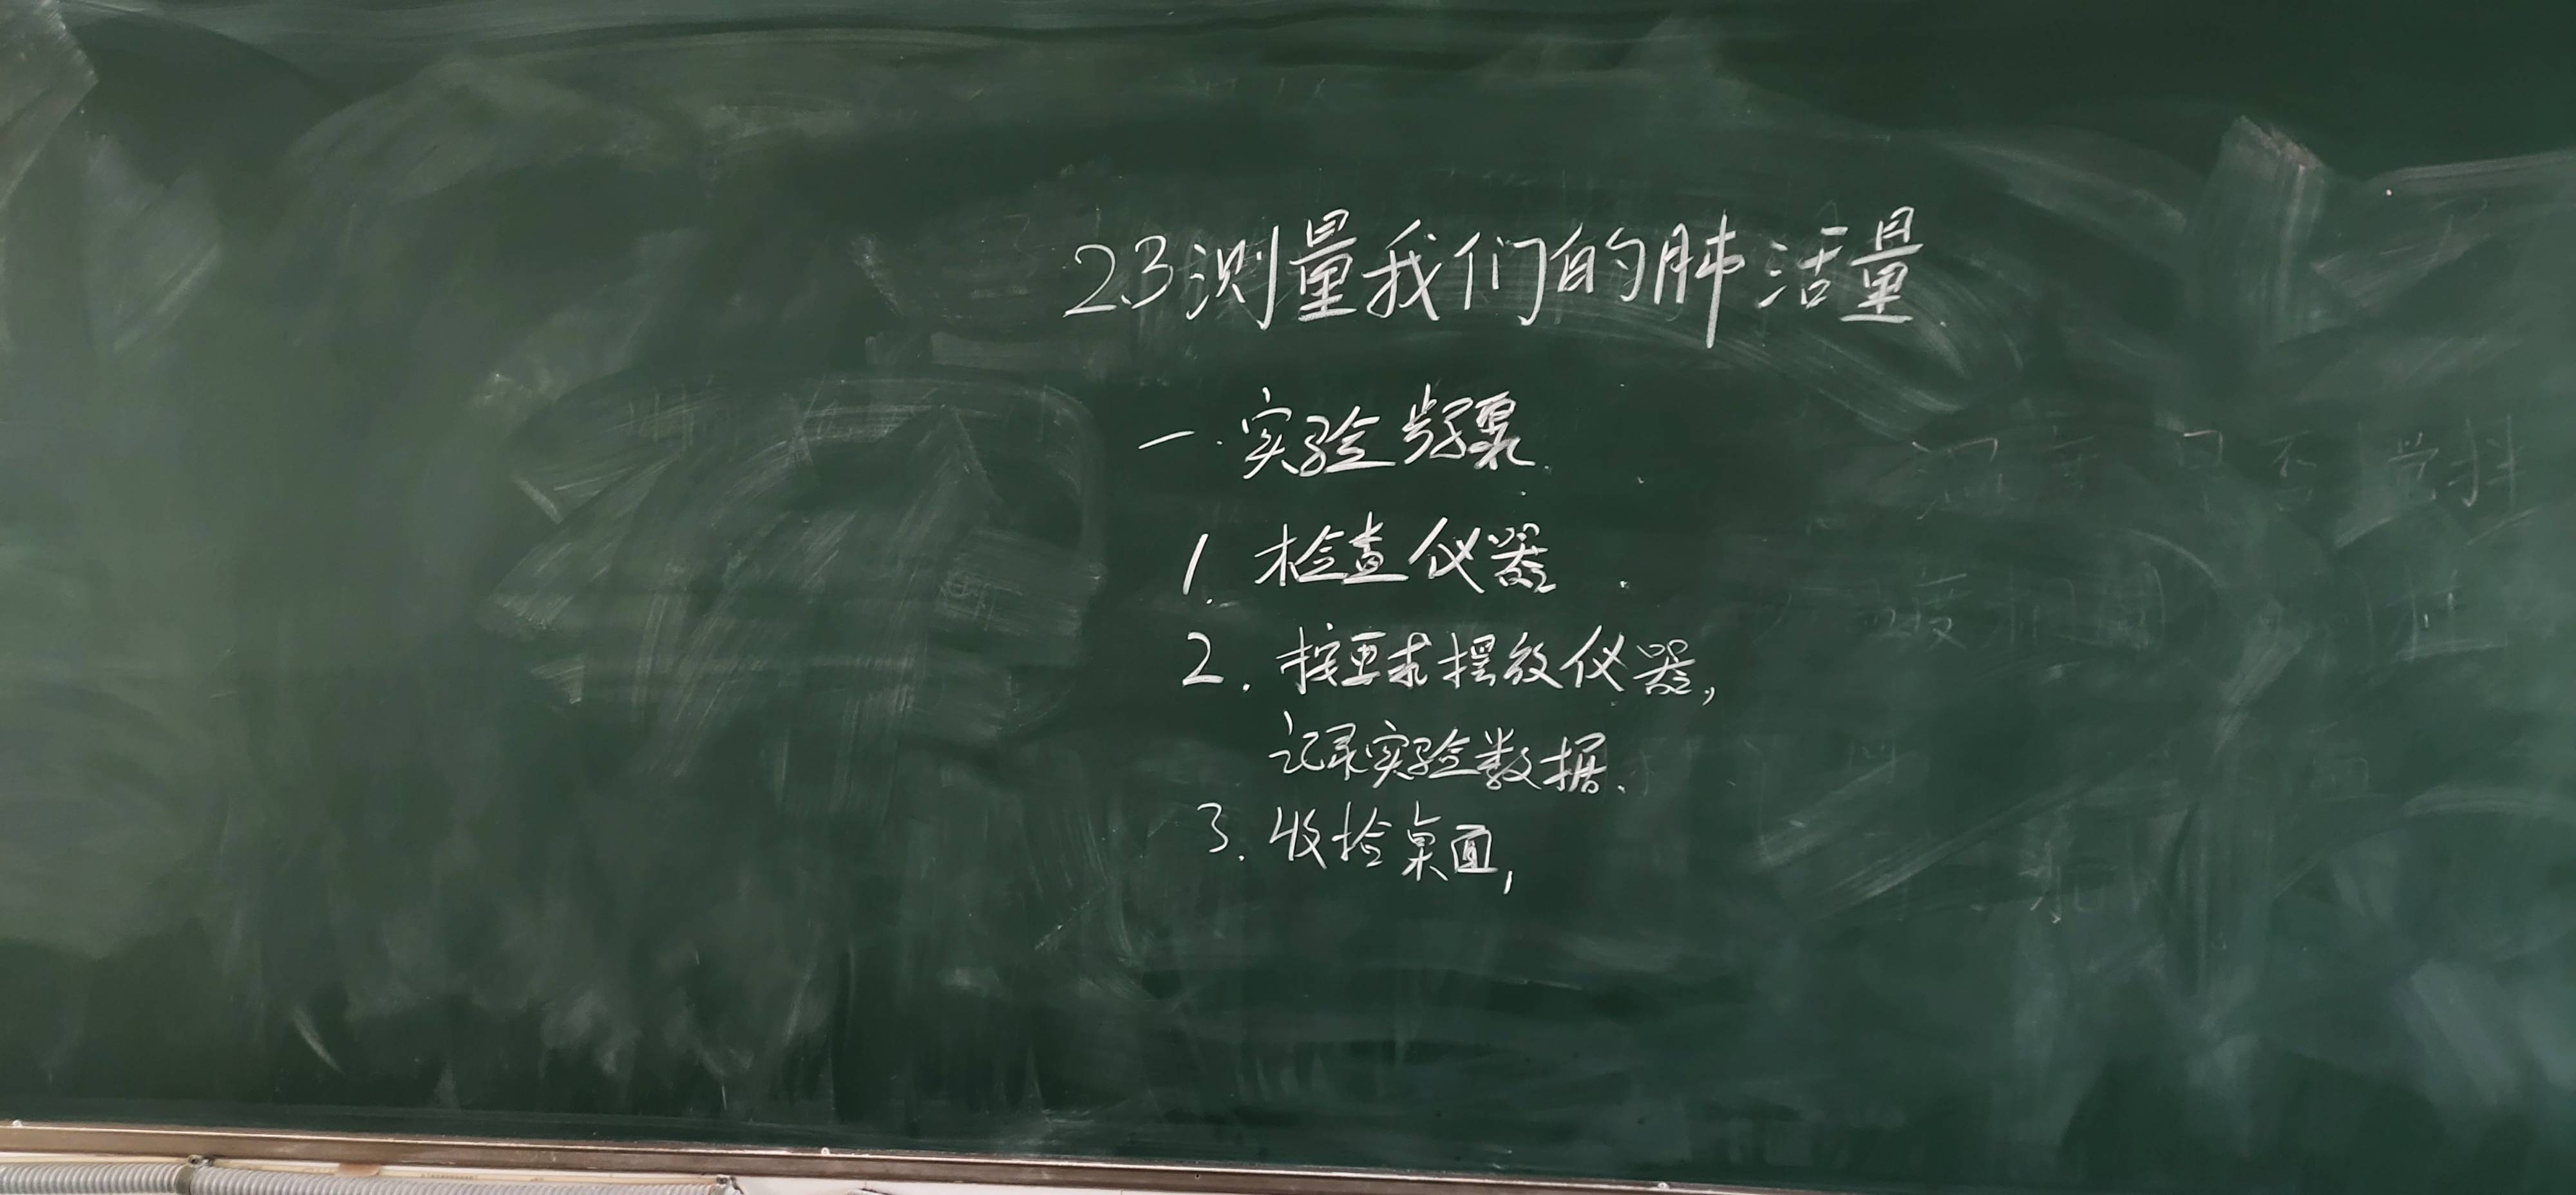 2.3测量我们的肺活量
一.实验步骤.
1.检查仪器.
2.按要求摆放仪器,
记录实验数据.
3.收拾桌面,